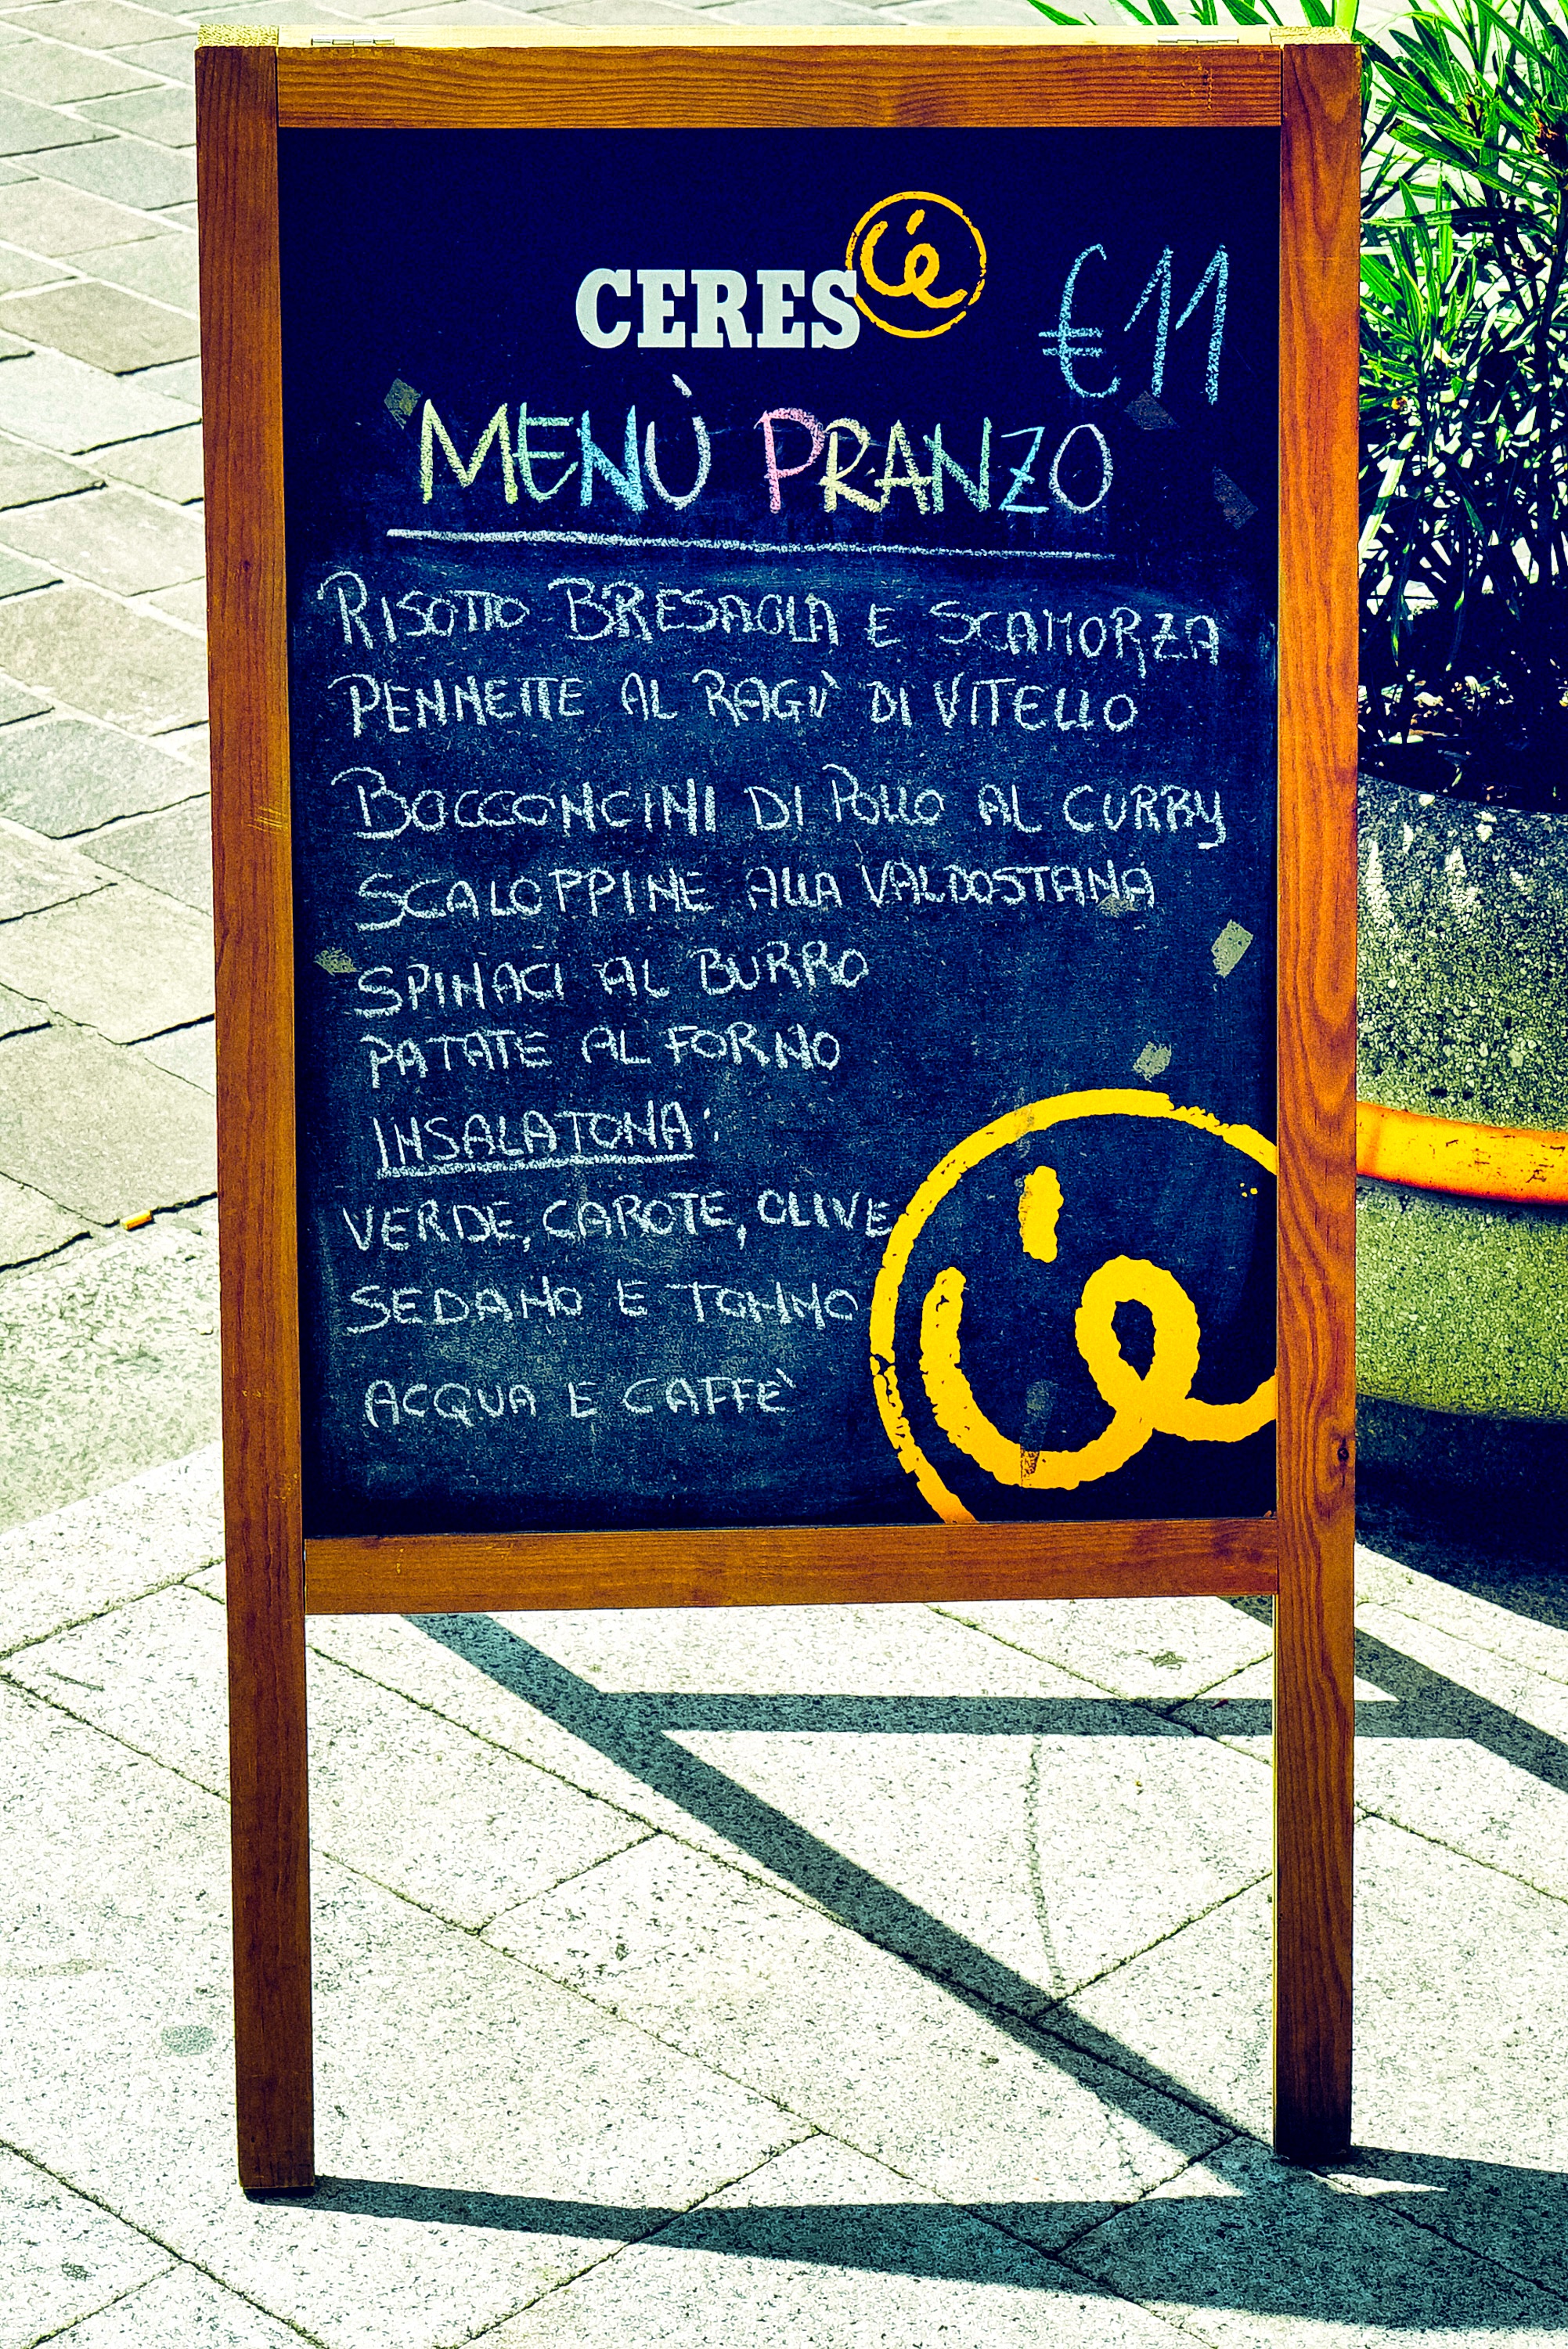 CERES
€11
MENÙ PRANZO
RISOTTO BRESAOLA E SCAMORZA
PENNETTE AL RAGÙ DI VITELLO
BOCCONCINI DI POLLO AL CURRY
SCALOPPINE ALLA VALDOSTANA
SPINACI AL BURRO
PATATE AL FORNO
INSALATONA:
VERDE, CAROTE, OLIVE
SEDANO E TONNO
ACQUA E CAFFÈ